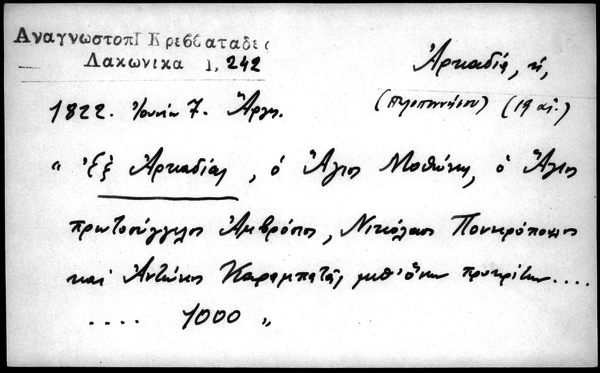 Αναγνωστοπ Κρεββαταδες
Λακωνικα 1, 242
Ἀρκαδιά, ἡ,
(Πελοποννήσου) (19 αἰ.)
1822. Ἰουνίου 7. Ἄργος.
" Ἐξ Ἀρκαδίας, ὁ Ἅγιος Μοθώνης, ὁ Ἅγιος
πρωτοσύγγελος Ἀμβρόσιος, Νικόλαος Πονηρόπουλος
καὶ Ἀντώνιος Καραμπατᾶς μεθ' ὅλων προκρίτων....
.... 1000 "